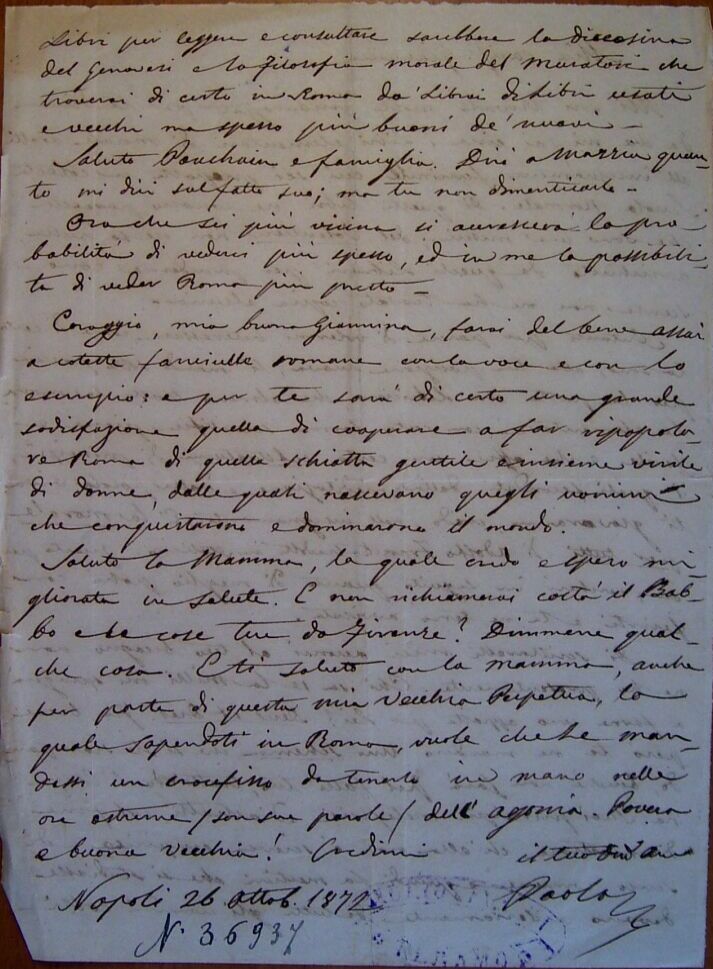 Libri per leggere e consultare sarebbere la diceosina
del Genovesi e la Filosofia morale del Muratori che
troverai di certo in Roma da' Librai di Libri usati
e vecchi ma spesso più buoni de' nuovi –
Saluto e famiglia. Dirò a Marzia quan-
to mi dici sul fatto suo; ma tu non dimenticarlo –
Ora che sei più vicina si avvererà la pro
babilità di vederci più spesso, ed in me la possibili-
tà di veder Roma più presto –
Coraggio, mia buona Giannina, farai del bene assai
a cotette fanciulle romane con la voce e con lo
esempio: e per te sarà di certo una grande
sodisfazione quella di cooperare a far ripopola-
re Roma di quella schiatta gentile e insieme virile
di donne, dalle quali nascevano quegli uomini
che conquistarono e dominarono il mondo.
Saluto la Mamma, la quale credo e spero mi-
gliorata in salute. E non richiamerai costà il Bab-
bo e le cose tue da Firenze? Dimmene qual-
che cosa. E ti saluto con la mamma, anche
per parte di questa mia vecchia Perpetua, la
quale sapendoti in Roma, vuole che le man-
dassi un crocefisso da tenerlo in mano nelle
ore estreme / son sue parole / dell' agonia. Povera
e buona vecchia! Credimi il tuo
Napoli 26 Ottob. 1872 Paolo
N 36937